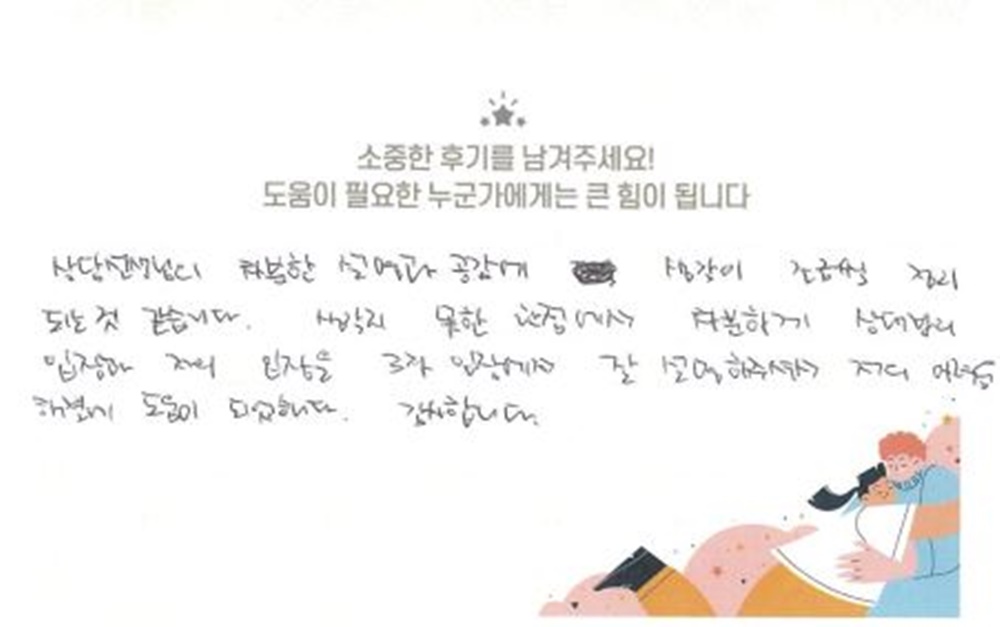 소중한 후기를 남겨주세요!
도움이 필요한 누군가에게는 큰 힘이 됩니다
상담선생님의 차분한 설명과 공감에 생각이 조금씩 정리
되는것 같습니다. 생각지 못한 관점에서 차분하게 상대방의
입장과 저의 입장을 3자 입장에서 잘 설명해주셔서 저의 어려움
해결에 도움이 되었습니다. 감사합니다.